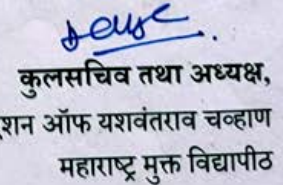 कुलसचिव तथा अध्यक्ष,
ऑफ यशवंतराव चव्हाण
महाराष्ट्र मुक्त विद्यापीठ